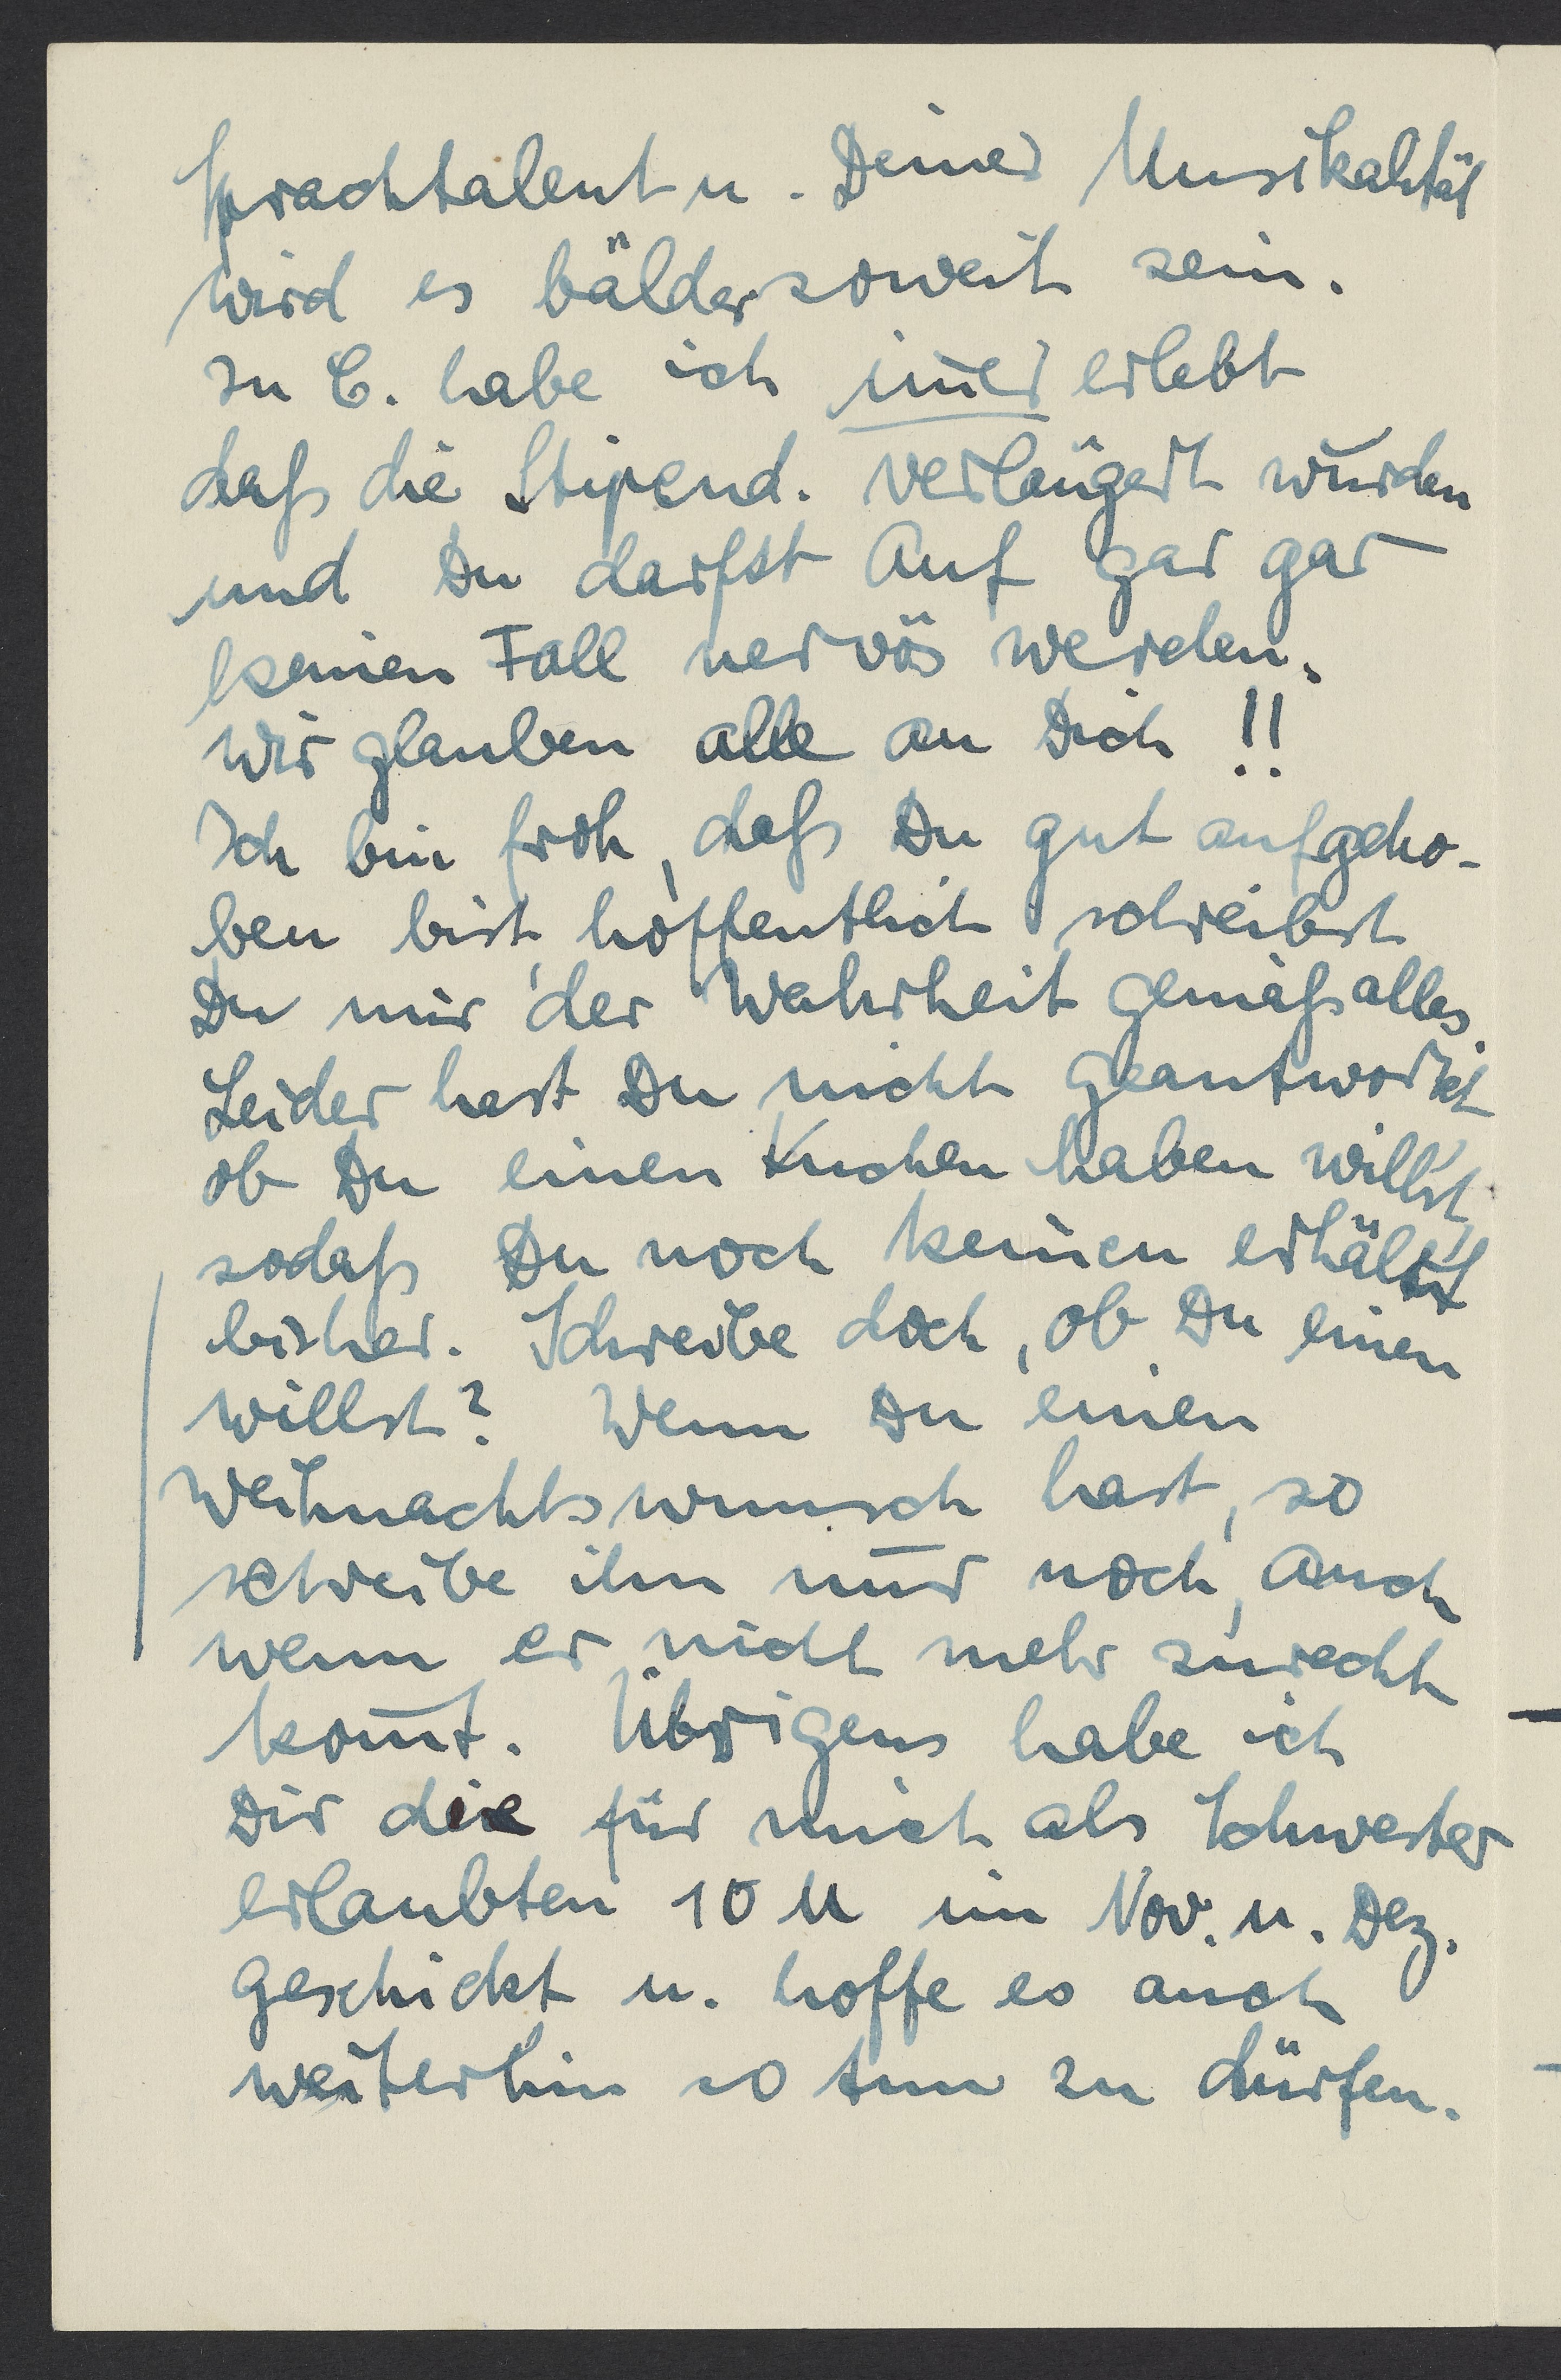 Sprachtalent u. Deiner Musikalität
wird es bälder soweit sein.
In C. habe ich im̅er erlebt
daß die Stipend. verlängert wurden
und Du darfst auf gar gar
keinen Fall nervös werden.
Wir glauben alle an Dich!!
Ich bin froh, daß Du gut aufgeho-
ben bist, hoffentlich schreibst
Du mir der Wahrheit gemäß alles.
Leider hast Du nicht geantwortet
ob Du einen Kuchen haben willst,
sodaß Du noch keinen erhältst
bisher. Schreibe doch, ob Du einen
willst? Wenn Du einen
Weihnachtswunsch hast, so
schreibe ihn nur noch, auch
wenn er nicht mehr zurecht
kom̅t. Übrigens habe ich
Dir die für mich als Schwester
erlaubten 10 M im Nov. u. Dez.
geschickt u. hoffe es auch
weiterhin so tun zu dürfen.